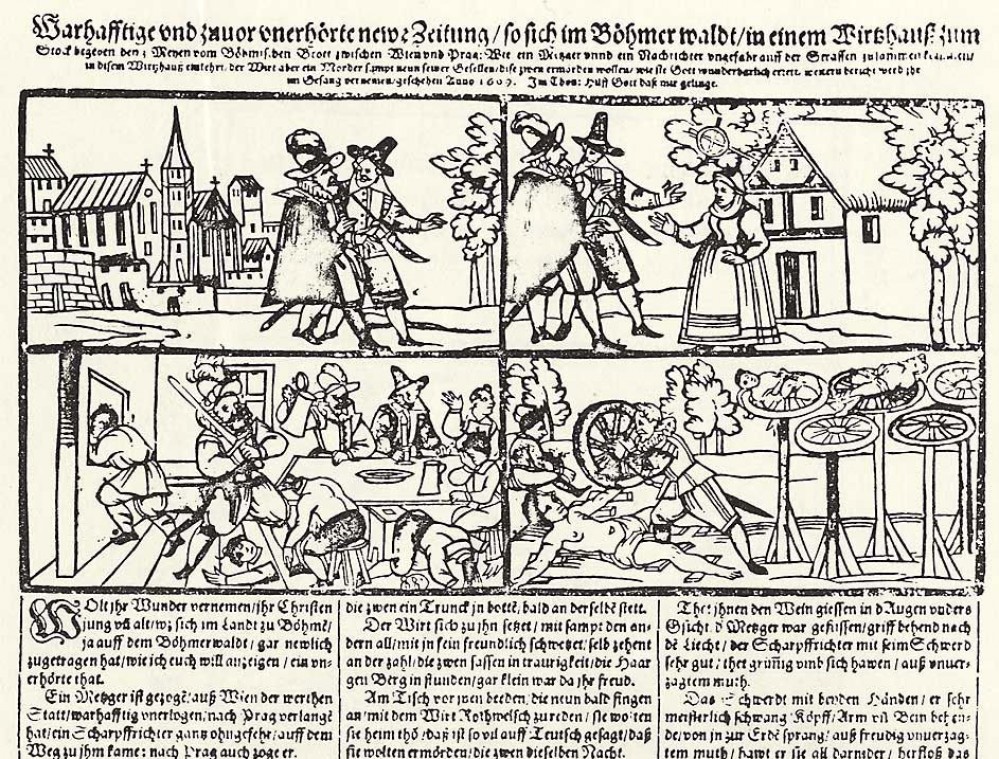 Warhafftige vnd zuuor vnerhörte newe Zeitung / so sich im Böhmer waldt / in einem Wirtzhauß zum
Stock begeben den 3 Meyen vom Böhmischen Brott zwischen Wien vnd Prag: Wie ein Metzger vnnd ein Nachrichter vngefahr auff der Strassen zusammen
in disem Wirtzhauß einkehrt. der Wirt aber ein Morder sampt neun seiner Gesellen / dise zwen ermorden wollen / wie sie Gott wunderbarlich errett. weittern bericht werd ihr
im Gesang vernemen / geschehen Anno 1609. Im Thon: Hilff Gott daß mir gelinge.
WOlt jhr Wunder vernemen / jhr Christen
jung vñ alt / wz sich im Landt zu Böhmẽ /
ja auff dem Böhmerwaldt / gar newlich
zugetragen hat / wie ich euch will anzeigen / ein vn-
erhörte that.
Ein Metzger ist gezogẽ / auß Wien der werthen
Statt / warhafftig vnerlogen / nach Prag verlangẽ
hat / ein Scharpfrichter gantz ohngefehr / auff dem
Weg zu jhm kame / nach Prag auch zoge er.
die zwen ein Trunck jn bottẽ / bald an derselbẽ stett.
Der Wirt sich zu jhn setzet / mit sampt den an-
dern all / mit jn fein freundlich schwetzet / selb zehent
an der zahl / die zwen sassen in traurigkeit / die Haar
gen Berg jn stunden / gar klein war da jhr freud.
Am Tisch vor jnen beeden / die neun bald fingen
an / mit dem Wirt Rothwelsch zu reden / sie wolten
sie heimthõ / daß ist so vil auff Teutsch gesagt / daß
sie wolten ermörden / die zwen dieselben Nacht.
Thet jhnen den Wein giessen in d Augen vnders
Gsicht. d Metzger war geflissen / griff behend nach
dẽ Liecht / der Scharpffrichter mit seim Schwerd
sehr gut / thet grimig vmb sich hawen / auß vnuer-
zagtem muth.
Das Schwerdt mit beyden Händen / er sehr
meisterlich schwang / Köpff / Arm vñ Bein behen-
de / von in zur Erdẽ sprang / auß freudig vnuerzag-
tem muth / hawt er sie all darnider / herfloß das